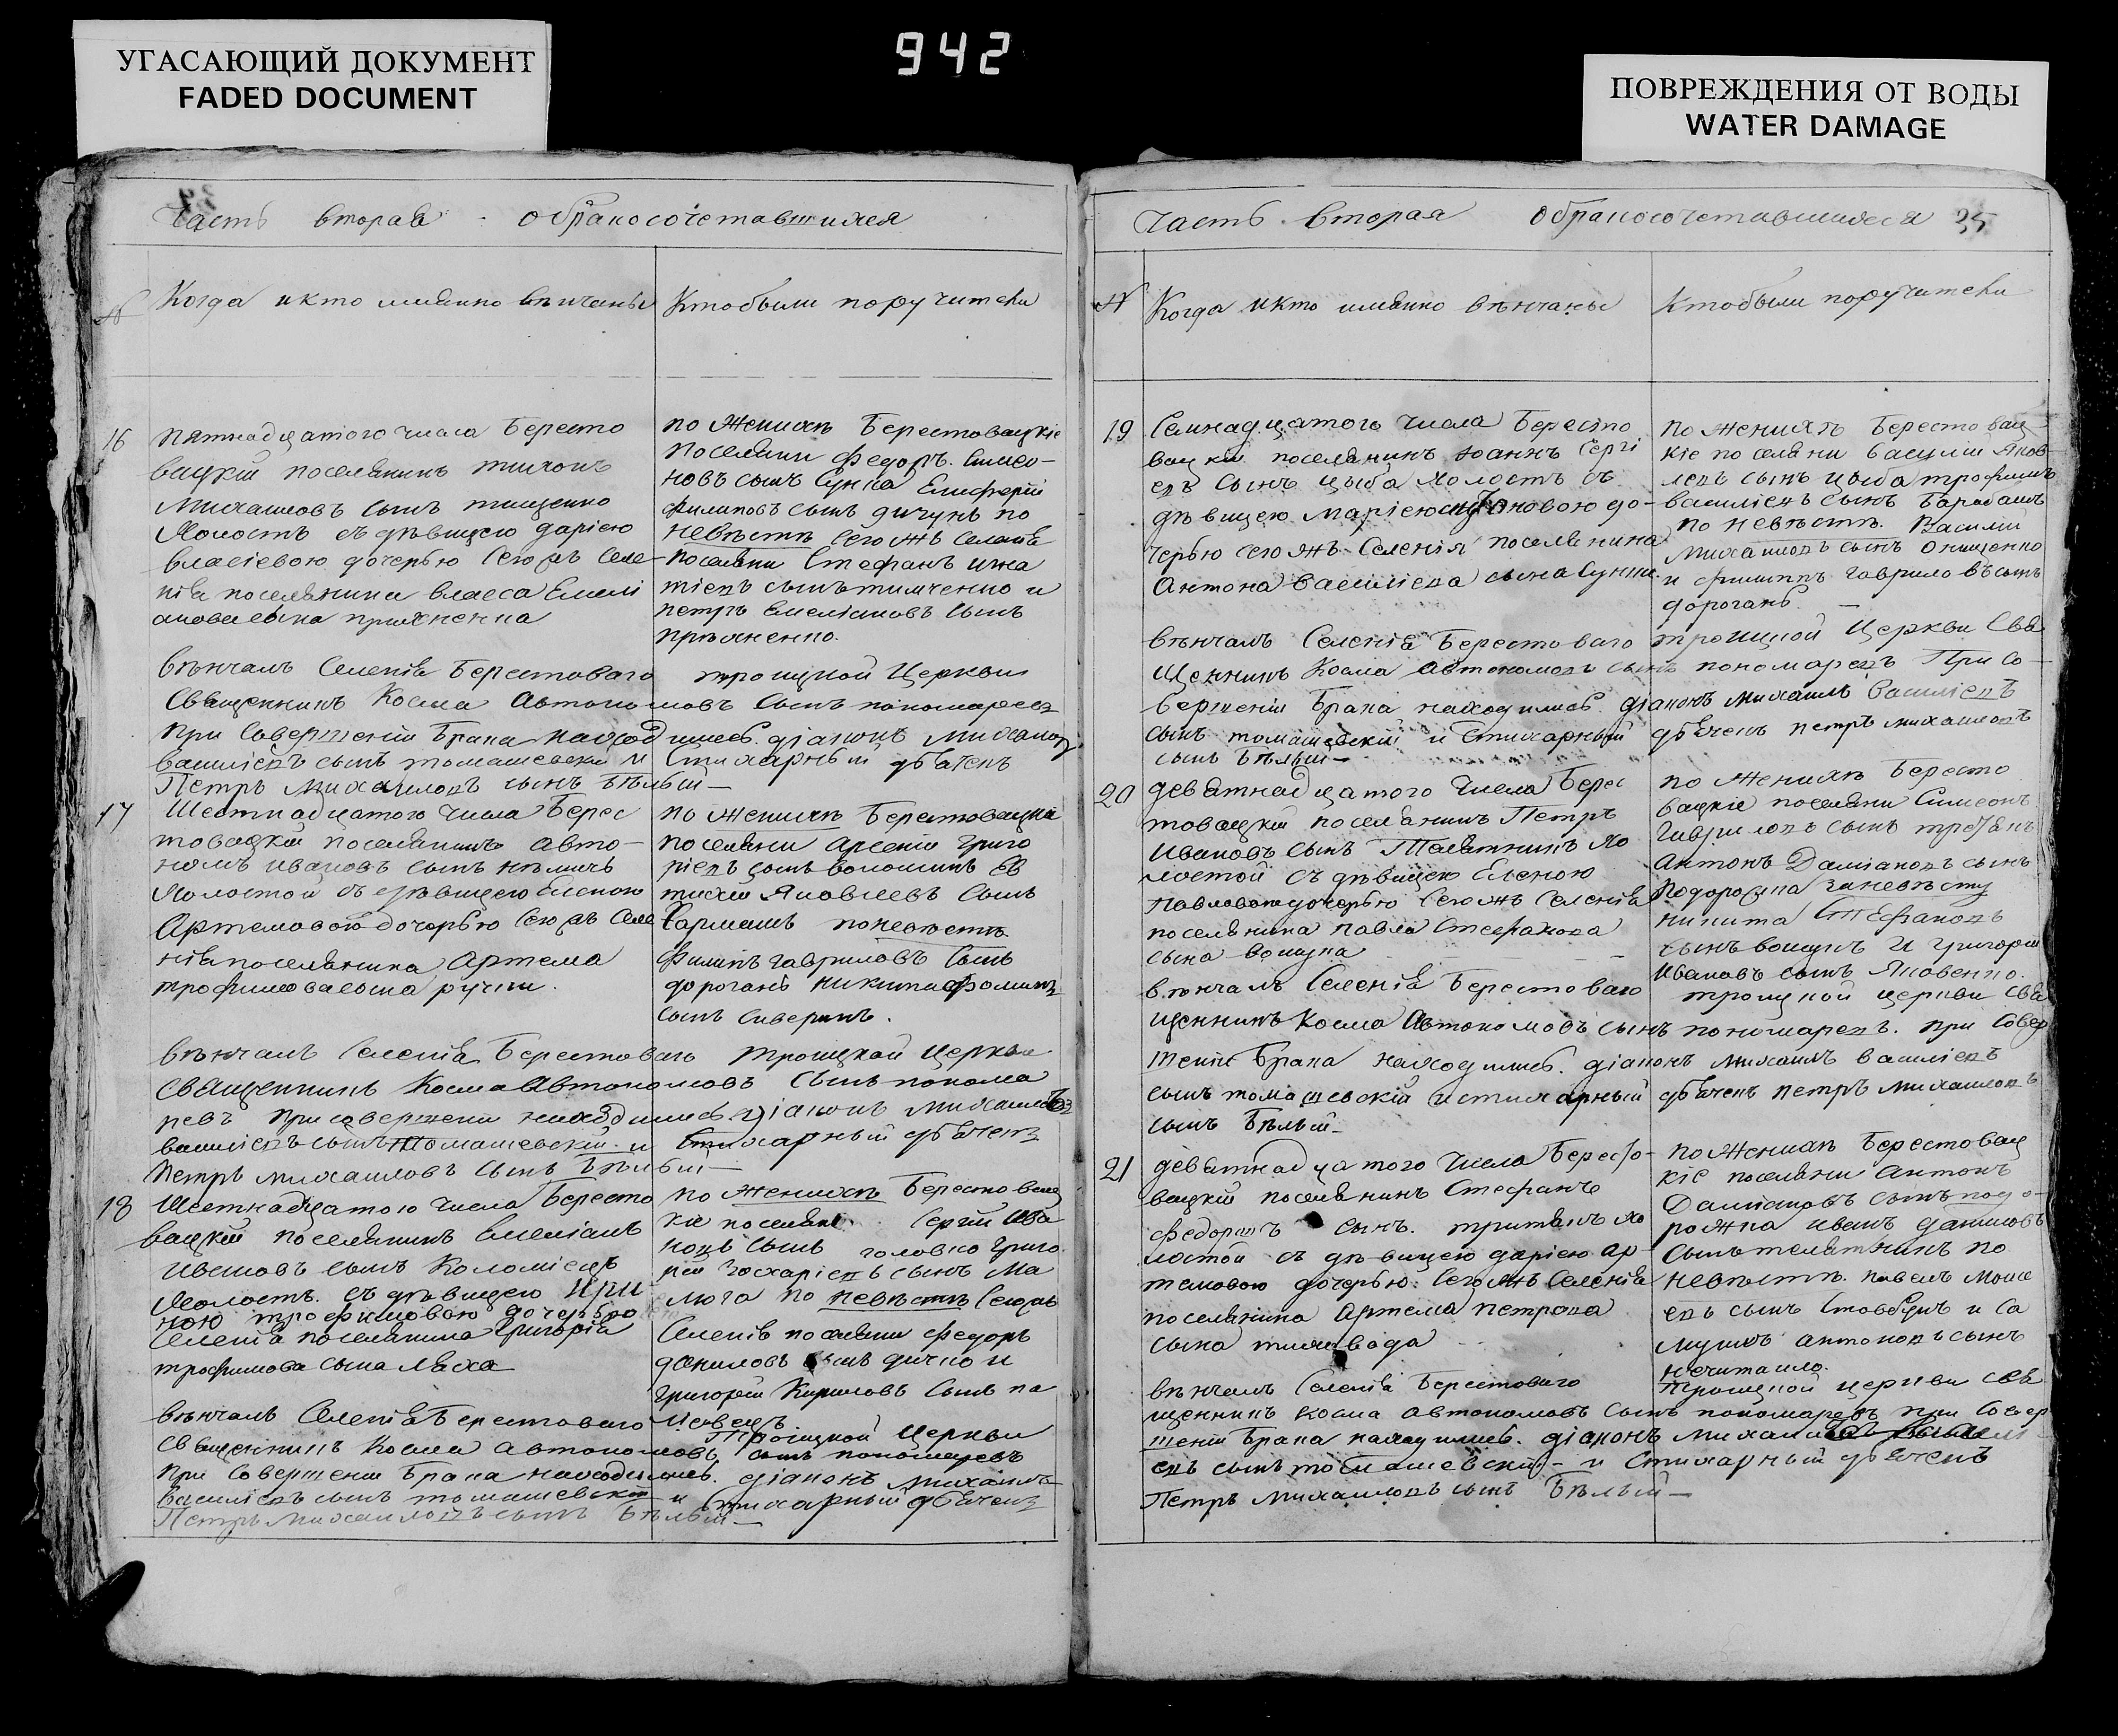 УГАСАЮЩИЙ ДОКУМЕНТ
FADED DOCUMENT
942
ПОВРЕЖДЕНИЯ ОТ ВОДЫ
WATER DAMAGE
Часть вторая обракосочетавшихся
№
Когда и кто имянно венчаны
Кто были поручители
16
пятнадцатого числа Бересто
вацкій поселянинъ тихонъ
Михаиловъ сынъ тищенко
Холостъ съ дѣвицею даріею
власіевою дочерью Сегожъ Селе-
нія поселянина власа Емелі
анова сына пряженка
по Женихѣ Берестовацкіе
поселяни Федоръ Симео-
новъ сынъ Сунка Елиферій
Филиповъ сынъ дичунъ по
невѣстѣ Сегожъ Селенія
поселяни Стефанъ игна
тіевъ сынъ тимченко и
петръ Емеліановъ сынъ
пряженко.
вѣнчалъ Селенія Берестоваго троицкой Церкви
Священникъ Косма Автономовъ Сынъ пономаревъ
при Совершеніи Брака находились. діаконъ Михаилъ
василіевъ сынъ томашевскій и Стихарный дьячекъ
Петръ михаиловъ сынъ Бѣлый—
17
Шестнадцатого числа Берес
товацкій поселянинъ авто-
номъ ивановъ сынъ нѣмичъ
Холостой съ дѣвицею Еленою
Артемовою дочерью Сегожъ Селе
нія поселянина Артема
трофимова сына ручки.
по Женихѣ Берестовацкіе
поселяни Арсеній Григо
ріевъ сынъ волошинъ Ев
тихій Яковлевъ Сынъ
Гармашъ по невестѣ
Филипъ гавриловъ Сынъ
дорогань никита Фоминъ
сынъ Сиверинъ.
вѣнчалъ Селенія Берестоваго троицкой Церкви
священникъ Косма Автономовъ Сынъ понома
ревъ при совершеніи находились діаконъ михаилъ
василіевъ сынъ томашевскій и Стихарный дьячекъ
Петръ михаиловъ сынъ Бѣлый—
18
Шестнадцатого числа Бересто
вацкій поселянинъ Емеліанъ
Ивановъ сынъ Коломіецъ
Холостъ. съ дѣвицею Ири
ною трофимовою дочерью
Селенія поселянина Григорія
трофимова сына ляха
по Женихѣ Берестовац
кіе поселяне Сергій Ива
новъ Сынъ головко Григо
рій Захаріевъ сынъ Ма
люга по невѣстѣ Сегожъ
Селенія поселяни Федоръ
даниловъ сынъ дичко и
Григорій Кириловъ Сынъ па
вѣнчалъ Селенія Берестоваго Троицкой Церкви
священникъ Косма автономовъ сынъ пономаревъ
при Совершеніи Брака находились. діаконъ михаилъ
василіевъ сынъ томашевскій и Стихарный дьячекъ
Петръ михаиловъ сынъ Бѣлый—
Часть вторая обракосочетавшихся 35
№
Когда и кто имянно вѣнчаны
Кто были поручители
19
Семнадцатого числа Бересто
вацкій поселянинъ Іоаннъ Сергі
евъ Сынъ цыба Холостъ съ
дѣвицею Маріею Антоновою до-
черью сегожъ Селенія поселянина
Антона василіева сына Сунки.
по женихѣ Берестовац-
кіе поселяни василій Яков-
левъ сынъ цыба трофимъ
василіевъ сынъ Барабашъ
по невѣстѣ. Василій
михаиловъ сынъ онищенко
и филиппъ гавриловъ сынъ
дорогань.—
вѣнчалъ Селенія Берестоваго троицкой Церкви Свя
щенникъ Косма автономовъ сынъ пономаревъ При Со-
вершеніи Брака находились. діаконъ михаилъ василіевъ
сынъ томашевскій и Стихарный дьячекъ петръ михаиловъ
сынъ Бѣлый—
20
девятнадцатого числа Берес
товацкій поселянинъ Петръ
Ивановъ сынъ Телятникъ Хо
лостой съ дѣвицею Еленою
павловою дочерью Сегожъ Селенія
поселянина павла Стефанова
сына вощука
по Женихѣ Бересто
вацкіе поселяни Симеонъ
Гавриловъ сынъ
Антонъ Даміановъ сынъ
подорожка за невѣсту
никита Стефановъ
сынъ вощукъ и Григорій
Ивановъ сынъ Яковенко.
вѣнчалъ Селенія Берестоваго троицкой церкви свя
щенникъ Косма Автономовъ сынъ пономаревъ. при Совер
шеніи Брака находились. діаконъ михаилъ василіевъ
сынъ томашевскій и стихарный дьячекъ петръ михаиловъ
сынъ Бѣлый—
21
девятнадцатого числа Бересто-
вацкій поселянинъ Стефанъ
Федоровъ сынъ. тритякъ хо
лостой съ дѣвицею даріею ар-
темовою дочерью. Сегожъ Селенія
поселянина Артема петрова
сына тиховода
по Женихѣ Берестовац
кіе поселяни Антонъ
Даміановъ сынъ подо-
рожка иванъ даниловъ
Сынъ телятникъ по
невѣстѣ. павелъ моисе
евъ сынъ Стовбунъ и Са
муилъ антоновъ сынъ
нечитайло.
вѣнчалъ Селенія Берестоваго Троицкой церкви свя
щенникъ косма автономовъ сынъ пономаревъ при Совер
шеніи Брака находились. діаконъ михаилъ васили
евъ сынъ томашевскій— и Стихарный дьячекъ
Петръ михаиловъ сынъ Бѣлый—